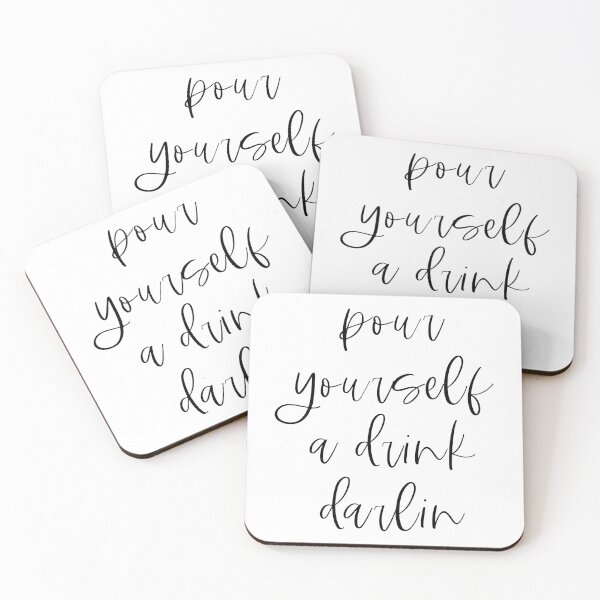 pour
yourself
a drink
pour
yourself
a drink
pour
yourself
a drink
darlin
pour
yourself
a drink
darlin